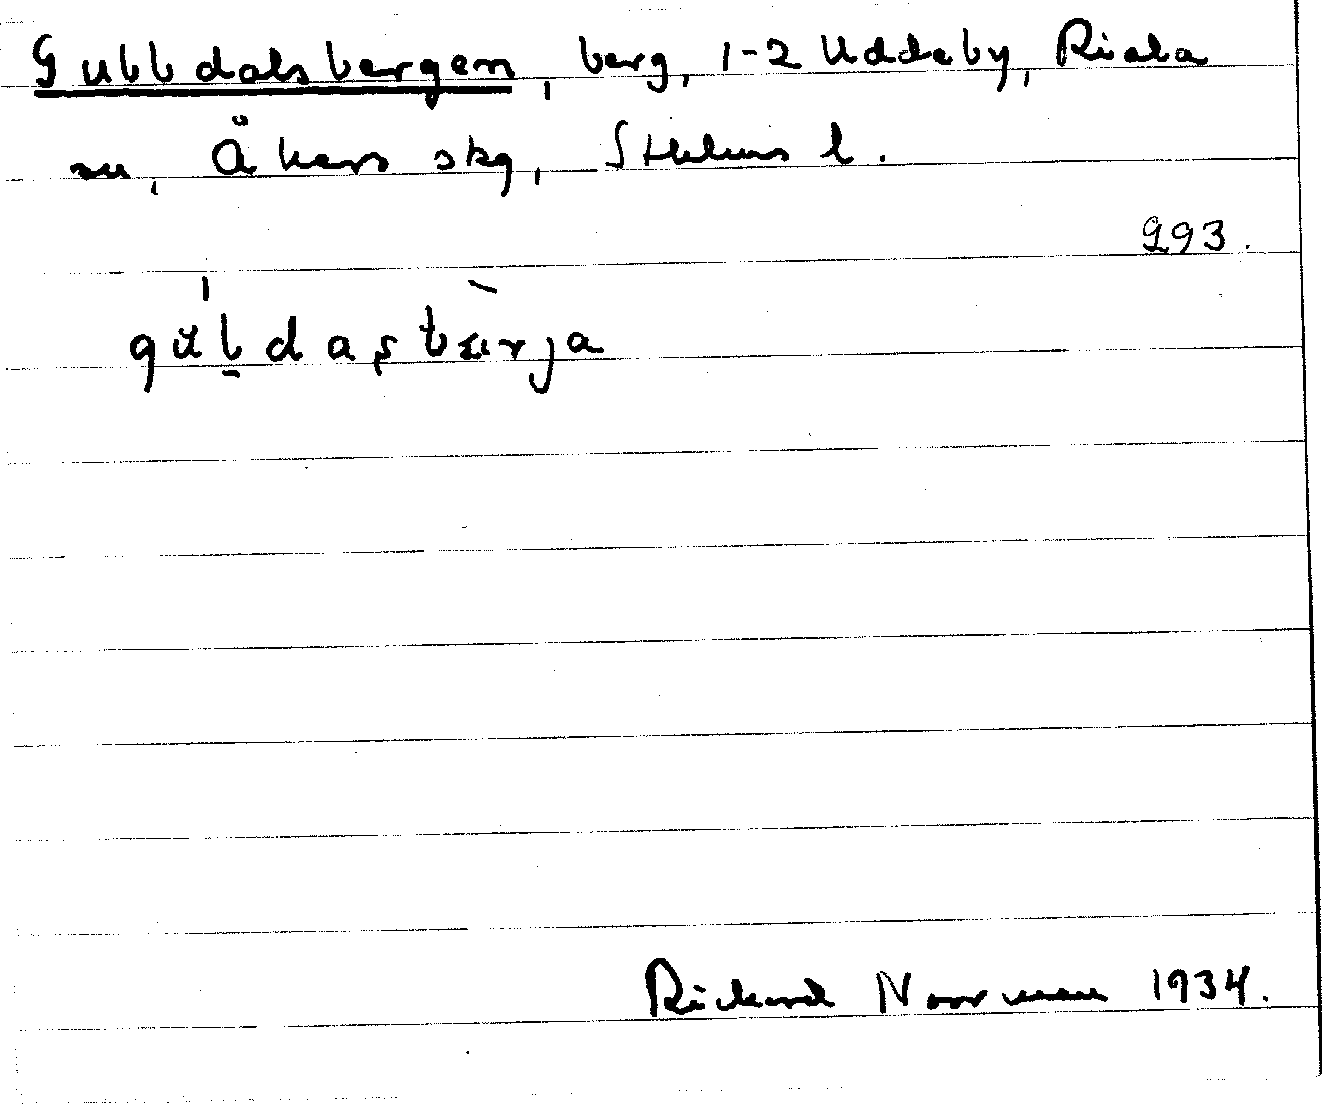 Gulldalsbergen, berg, 1-2 Uddeby, Riala
sn, Åkers skg, Sthlms l.
993.
Rickard Noorman 1934.